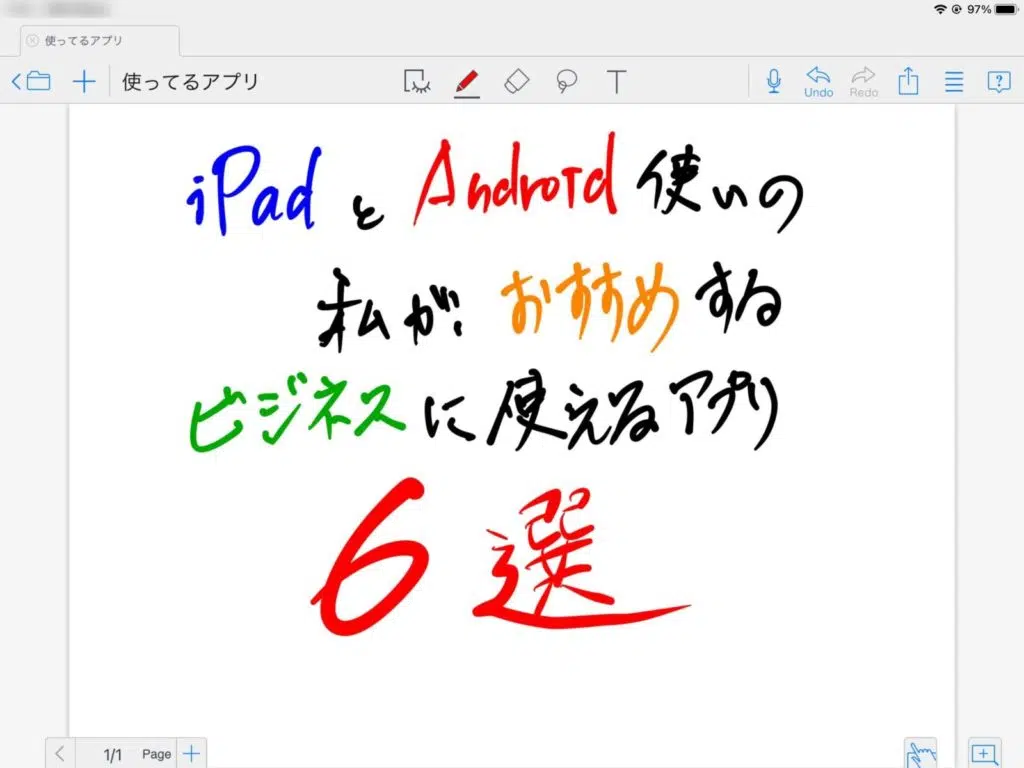 97%
使ってるアプリ
使ってるアプリ
T
Undo
Redo
iPadとAndroid使いの
私がおすすめする
ビジネスに使えるアプリ
6選
1/1 Page